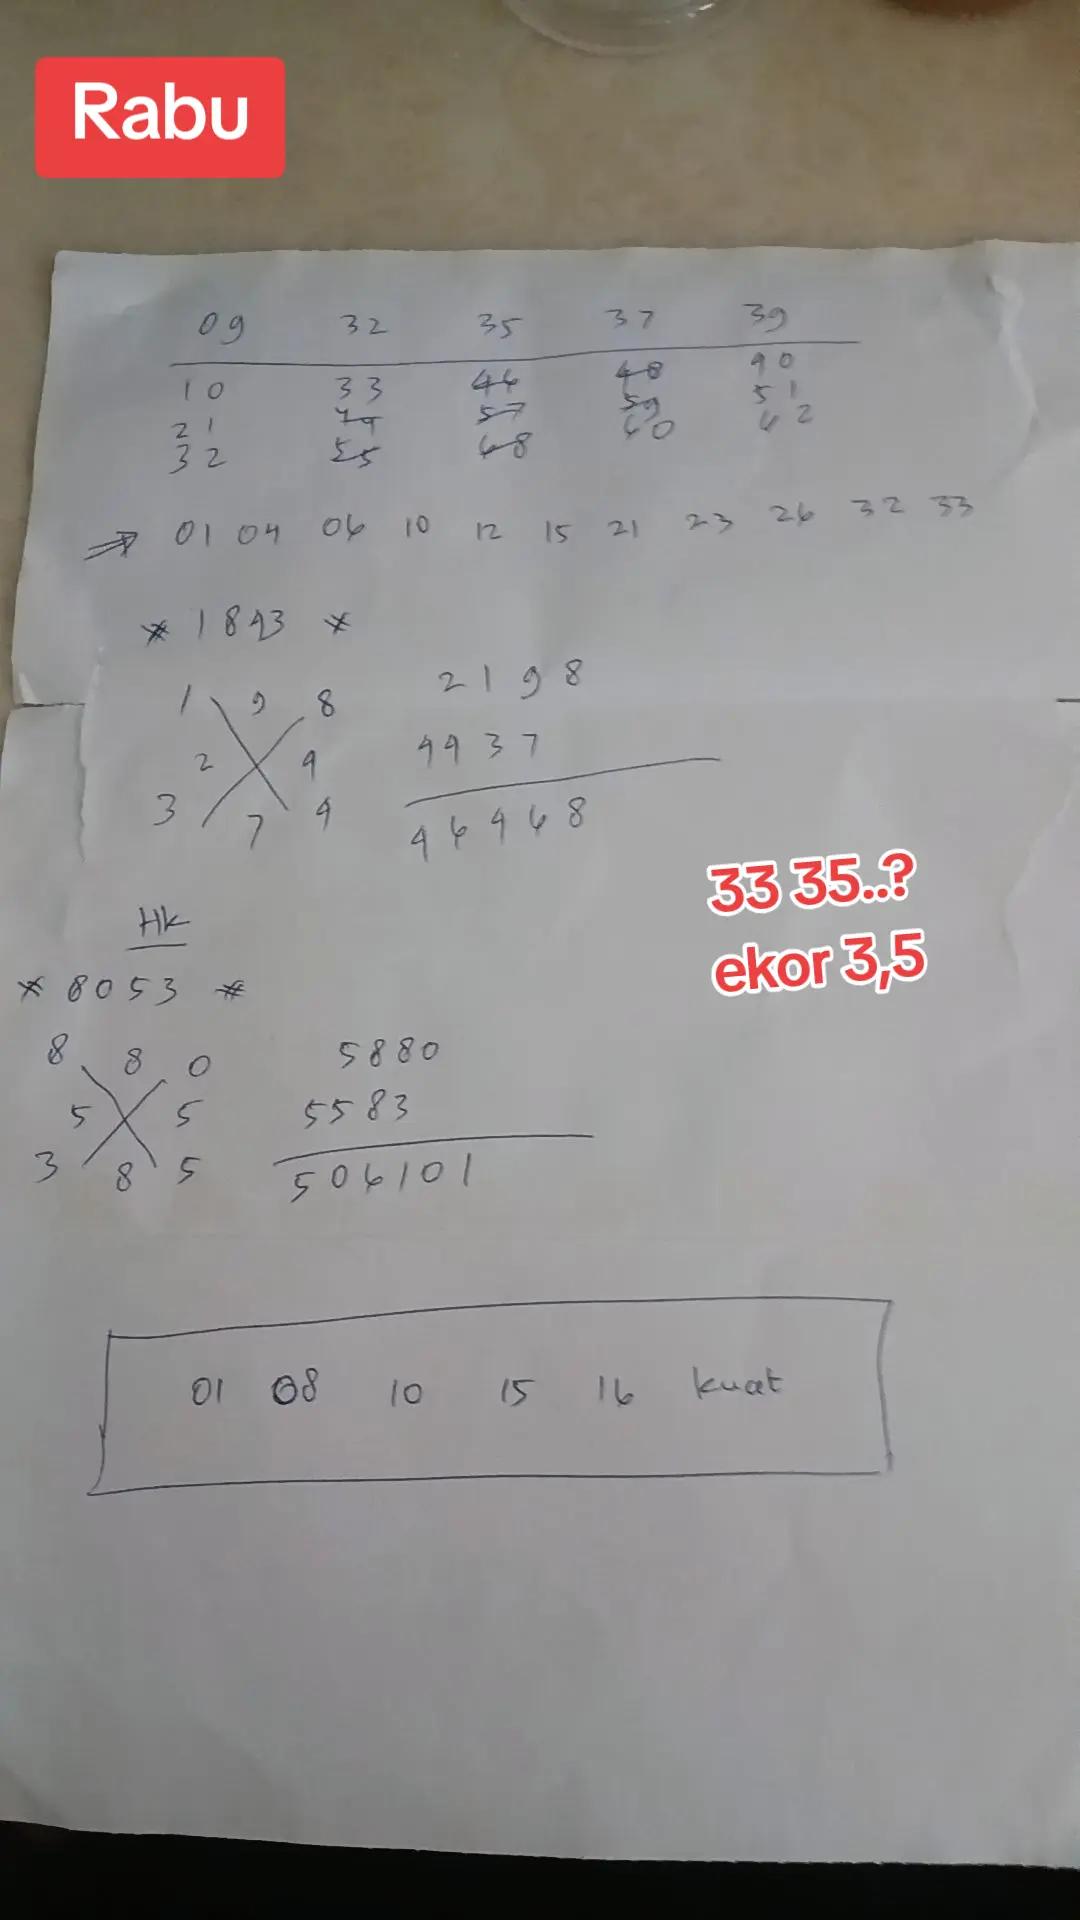 Rabu
09 32 35 37 39
10 33 46 48 40
21 44 57 59 51
32 55 68 60 62
⇒ 01 04 06 10 12 15 21 23 26 32 33
* 1843 *
1 9 8 2198
2 4 4437
3 7 4 46468
33 35..?
ekor 3,5
HK
* 8053 *
8 8 0 5880
5 5 5583
3 8 5 506101
01 08 10 15 16 kuat